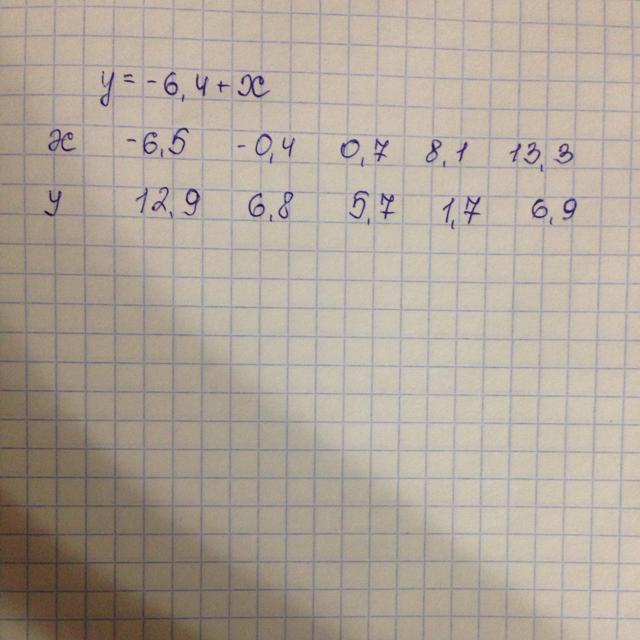 y = -6,4 + x
x -6,5 -0,4 0,7 8,1 13,3
y 12,9 6,8 5,7 1,7 6,9